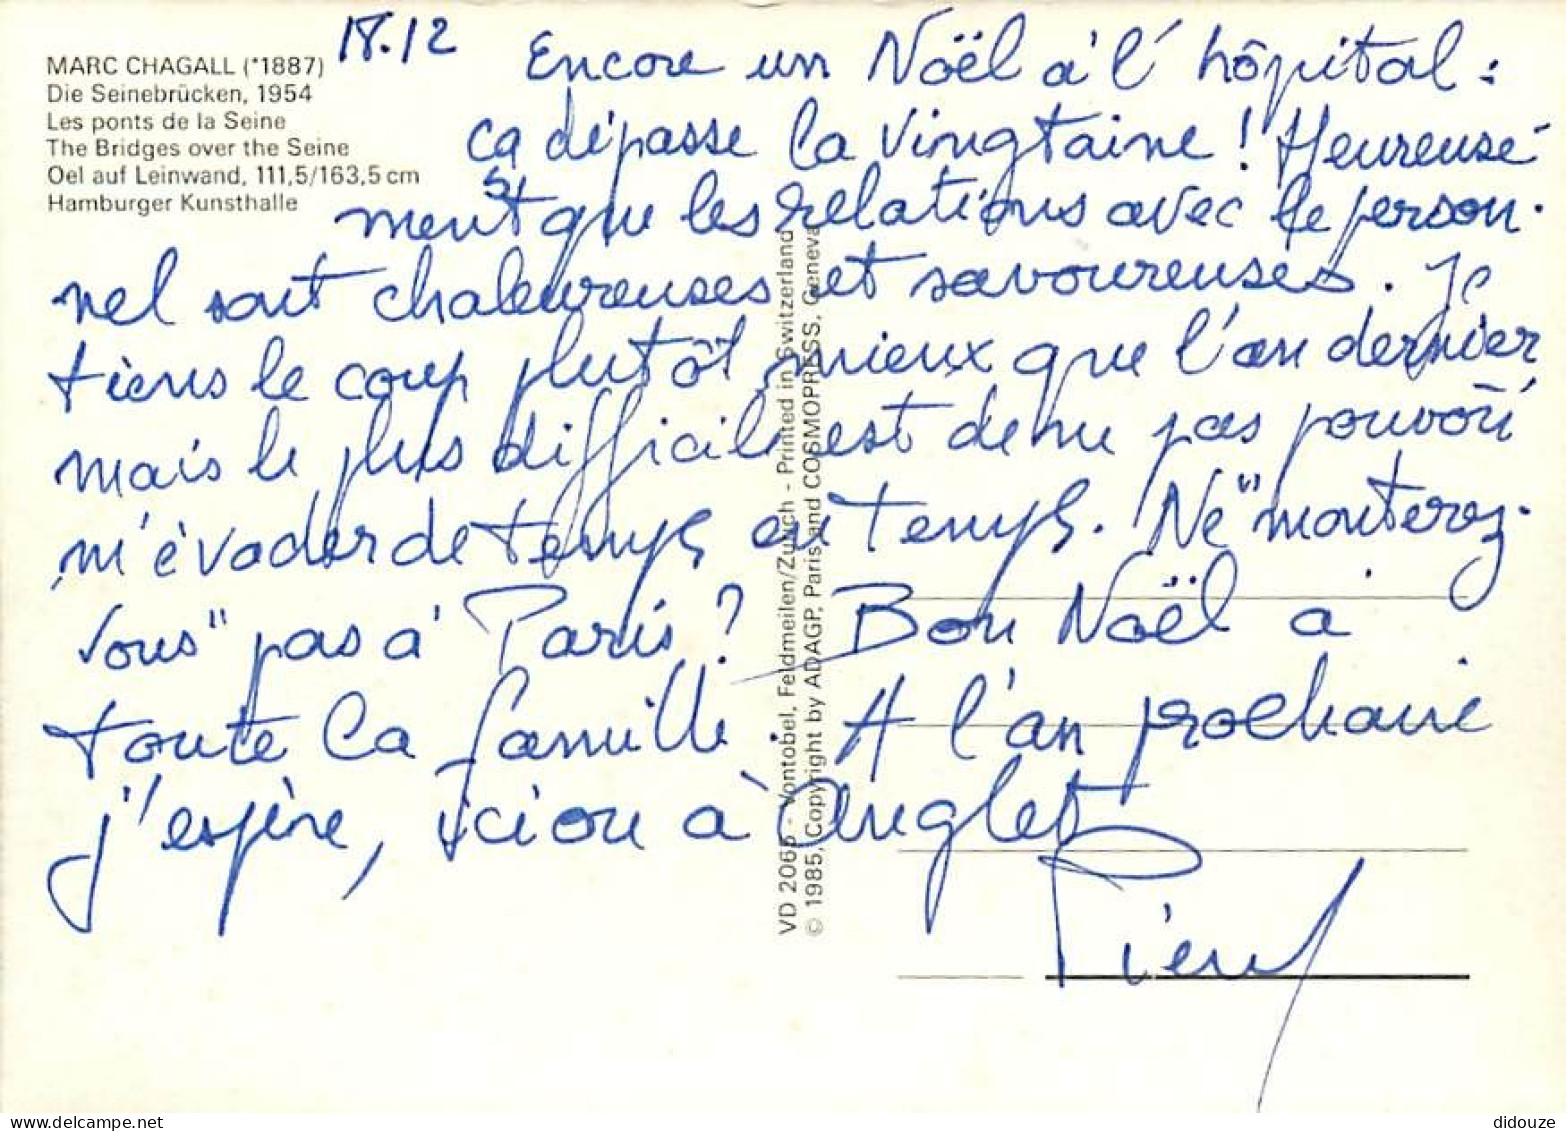 18.12
MARC CHAGALL (*1887)
Die Seinebrücken, 1954
Les ponts de la Seine
The Bridges over the Seine
Oel auf Leinwand, 111,5/163,5 cm
Hamburger Kunsthalle
Encore un Noël à l'hôpital :
ça dépasse la vingtaine ! Heureuse-
ment que les relations avec le person-
nel sont chaleureuses et savoureuses. Je
tiens le coup plutôt mieux que l'an dernier
mais le plus difficile est de ne pas pouvoir
m'évader de temps en temps. Ne "monterez-
vous" pas à Paris ? Bon Noël à
toute la famille. A l'an prochain
j'espère, ici ou à Anglet
Pierre
VD 2065 - Vontobel, Feldmeilen/Zürich - Printed in Switzerland
© 1985, Copyright by ADAGP, Paris and COSMOPRESS, Geneva
didouze